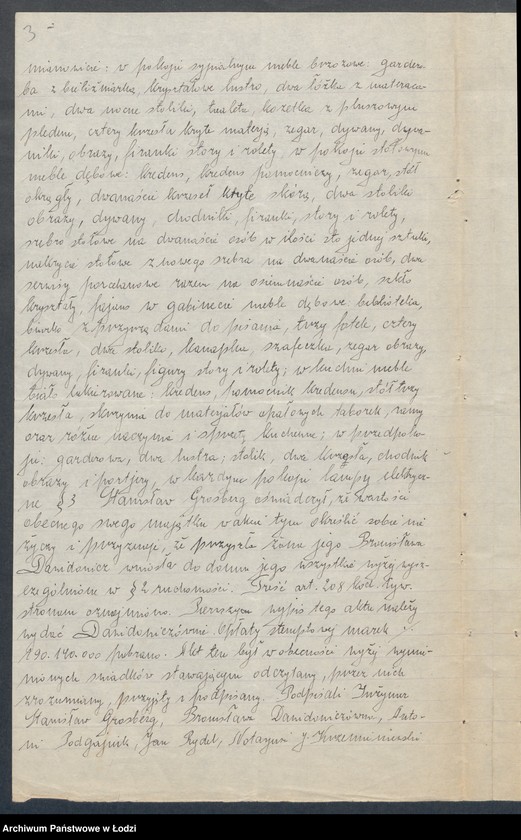 3 -
mianowicie: w pokoju sypialnym meble brzozowe: gardero-
ba z bieliźniarką, kryształowe lustro, dwa łóżka z materaca-
mi, dwa nocne stoliki, tualeta, kozetka z pluszowym
pledem, cztery krzesła kryte materją, zegar, dywany, dywa-
niki, obrazy, firanki story i rolety, w pokoju stołowym
meble dębowe: kredens, kredens pomocniczy, zegar, stół
okrągły, dwanaście krzeseł kryte skórą, dwa stoliki
obrazy, dywany, chodniki, firanki, story i rolety,
srebro stołowe na dwanaście osób w ilości sto jeden sztuk,
nakrycie stołowe z nowego srebra na dwanaście osób, dwa
serwisy porcelanowe razem na osiemnaście osób, szkło
kryształy, fajans w gabinecie meble dębowe biblioteka,
biurko z przyrządami do pisania, trzy fotele, cztery
krzesła, dwa stoliki, kanapka, szafeczka, zegar obrazy,
dywany, firanki, figury story i rolety; w kuchni meble
biało lakierowane: kredens, pomocnik kredensu, stół trzy
krzesła, skrzynia do materjałów opałowych taborek, ramy
oraz różne naczynia i sprzęty kuchenne; w przedpoko-
ju: garderoba, dwa lustra, stolik, dwa krzesła, chodnik
obrazy i portjery, w każdym pokoju lampy elektrycz-
ne § 3 Stanisław Grosberg oświadczył, że wartości
obecnego swego majątku w akcie tym określić sobie nie
życzy i przyznaje, że przyszła żona jego Bronisława
Dawidowicz wniosła do domu jego wszystkie wyżej wysz-
czególnione w § 2 ruchomości. Treść art. 208 kod. cyw.
stronom oznajmiono. Pierwszym wypis tego aktu należy
wydać Dawidowiczównie Opłaty stemplowej marek
190.140.000 pobrano. Akt ten był w obecności wyżej wymie-
nionych świadków stawającym odczytany, przez nich
zrozumiany, przyjęty i podpisany. Podpisali Inżynier
Stanisław Grosberg, Bronisława Dawidowiczówna, Anto-
ni Podgajnik, Jan Rydel, Notaryusz J. Krzemieniewski
Archiwum Państwowe w Łodzi